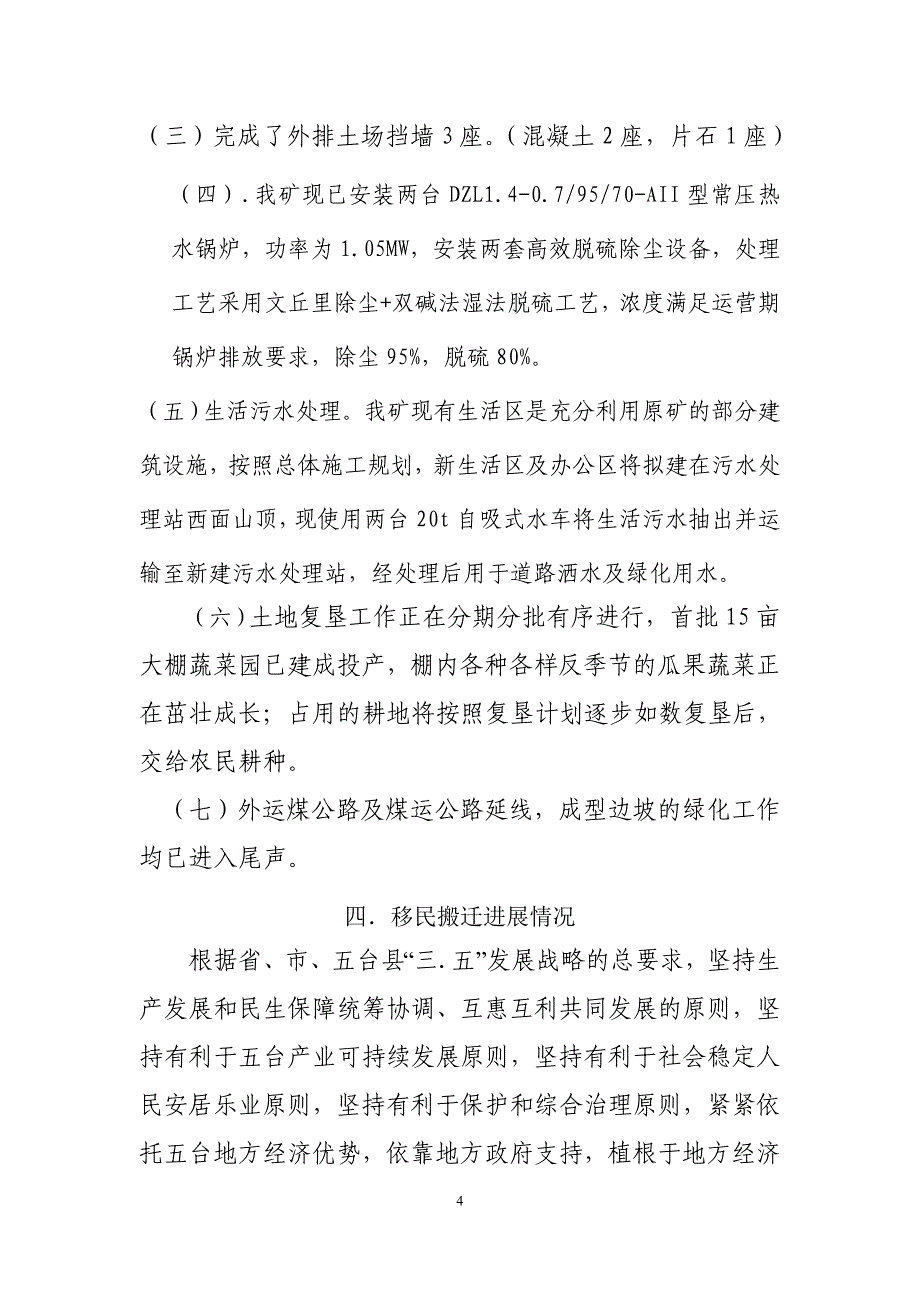 （三）完成了外排土场挡墙 3 座。（混凝土 2 座，片石 1 座）
（四）.我矿现已安装两台 DZL1.4-0.7/95/70-AII 型常压热
水锅炉，功率为 1.05MW，安装两套高效脱硫除尘设备，处理
工艺采用文丘里除尘+双碱法湿法脱硫工艺，浓度满足运营期
锅炉排放要求，除尘 95%，脱硫 80%。
（五）生活污水处理。我矿现有生活区是充分利用原矿的部分建
筑设施，按照总体施工规划，新生活区及办公区将拟建在污水处
理站西面山顶，现使用两台 20t 自吸式水车将生活污水抽出并运
输至新建污水处理站，经处理后用于道路洒水及绿化用水。
（六）土地复垦工作正在分期分批有序进行，首批 15 亩
大棚蔬菜园已建成投产，棚内各种各样反季节的瓜果蔬菜正
在茁壮成长；占用的耕地将按照复垦计划逐步如数复垦后，
交给农民耕种。
（七）外运煤公路及煤运公路延线，成型边坡的绿化工作
均已进入尾声。
四．移民搬迁进展情况
根据省、市、五台县“三.五”发展战略的总要求，坚持生
产发展和民生保障统筹协调、互惠互利共同发展的原则，坚
持有利于五台产业可持续发展原则，坚持有利于社会稳定人
民安居乐业原则，坚持有利于保护和综合治理原则，紧紧依
托五台地方经济优势，依靠地方政府支持，植根于地方经济
4